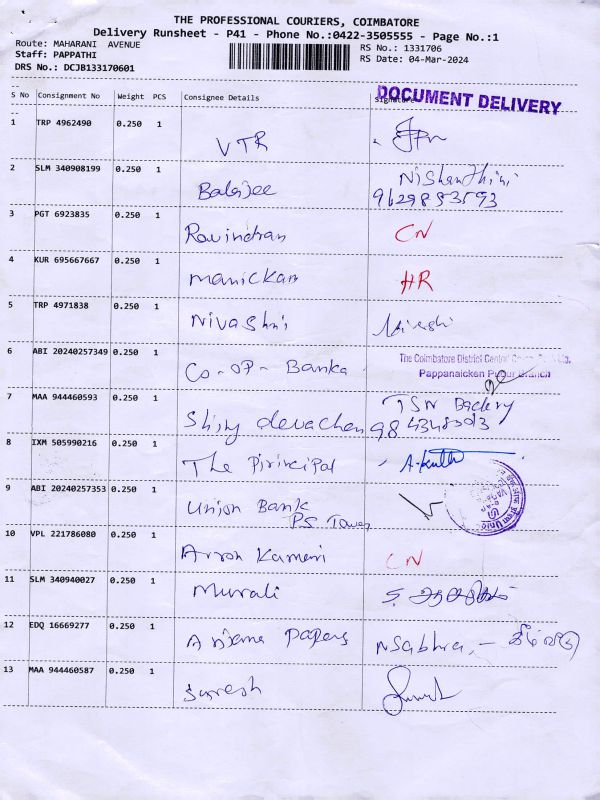 THE PROFESSIONAL COURIERS, COIMBATORE
Delivery Runsheet - P41 - Phone No.:0422-3505555 - Page No.:1
Route: MAHARANI AVENUE
Staff: PAPPATHI
DRS No.: DCJB133170601
RS No.: 1331706
RS Date: 04-Mar-2024
DOCUMENT DELIVERY
S No Consignment No Weight PCS Consignee Details Signature
1 TRP 4962490 0.250 1
VTR
2 SLM 340908199 0.250 1
Balajee Nishanthini
3 PGT 6923835 0.250 1
Ravindran CN
4 KUR 695667667 0.250 1
Manickam HR
5 TRP 4971838 0.250 1
Nivashni
6 ABI 20240257349 0.250 1
Co-OP-Banka
The Coimbatore District Central
Pappanaicken Pudur Branch
7 MAA 944460593 0.250 1
Shiny devachan
8 IXM 505990216 0.250 1
The Pirincipal
9 ABI 20240257353 0.250 1
Union Bank
PS Tower
10 VPL 221786080 0.250 1
CN
11 SLM 340940027 0.250 1
Murali
12 EDQ 16669277 0.250 1
Papers
13 MAA 944460587 0.250 1
Suresh